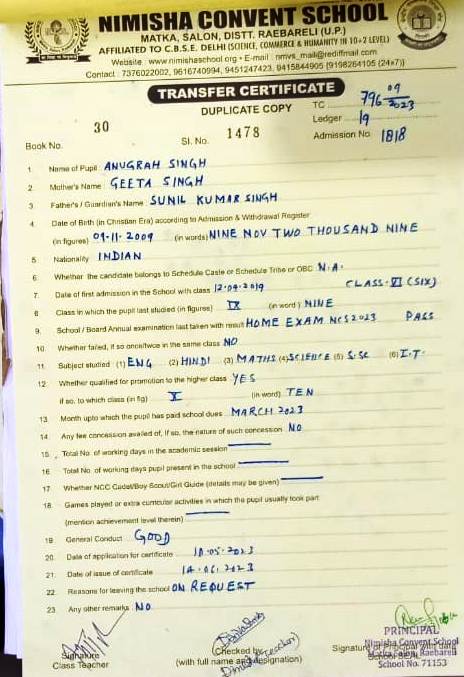 NIMISHA CONVENT SCHOOL
MATKA, SALON, DISTT. RAEBARELI (U.P.)
AFFILIATED TO C.B.S.E. DELHI (SCIENCE, COMMERCE & HUMANITY IN 10+2 LEVEL)
Website : www.nimishaschool.org • E-mail : nmvs_mail@rediffmail.com
Contact : 7376022002, 9616740994, 9451247423, 9415844905 [9198264105 (24x7)]
TRANSFER CERTIFICATE
DUPLICATE COPY
TC 796 09/2023
Ledger 19
Book No. 30 Sl. No. 1478 Admission No. 1818
1. Name of Pupil ANUGRAH SINGH
2. Mother's Name GEETA SINGH
3. Father's / Guardian's Name SUNIL KUMAR SINGH
4. Date of Birth (in Christian Era) according to Admission & Withdrawal Register
(in figures) 09-11-2009 (in words) NINE NOV TWO THOUSAND NINE
5. Nationality INDIAN
6. Whether the candidate belongs to Schedule Caste or Schedule Tribe or OBC N.A.
7. Date of first admission in the School with class 12.04.2019 CLASS-VI (SIX)
8. Class in which the pupil last studied (in figures) IX (in word) NINE
9. School / Board Annual examination last taken with result HOME EXAM NCS 2023 PASS
10. Whether failed, if so once/twice in the same class NO
11. Subject studied (1) ENG (2) HINDI (3) MATHS (4) SCIENCE (5) S.Sc (6) I.T.
12. Whether qualified for promotion to the higher class YES
if so, to which class (in fig) X (in word) TEN
13. Month upto which the pupil has paid school dues MARCH 2023
14. Any fee concession availed of, if so, the nature of such concession NO
15. Total No. of working days in the academic session
16. Total No. of working days pupil present in the school
17. Whether NCC Cadet/Boy Scout/Girl Guide (details may be given)
18. Games played or extra curricular activities in which the pupil usually took part
(mention achievement level therein)
19. General Conduct GOOD
20. Date of application for certificate 10.05.2023
21. Date of issue of certificate 14.06.2023
22. Reasons for leaving the school ON REQUEST
23. Any other remarks NO
Signature
Class Teacher
Checked by
(with full name and designation)
Signature of Principal with date
School SEAL
PRINCIPAL
Nimisha Convent School
Matka, Salon, Raebareli
School No. 71153